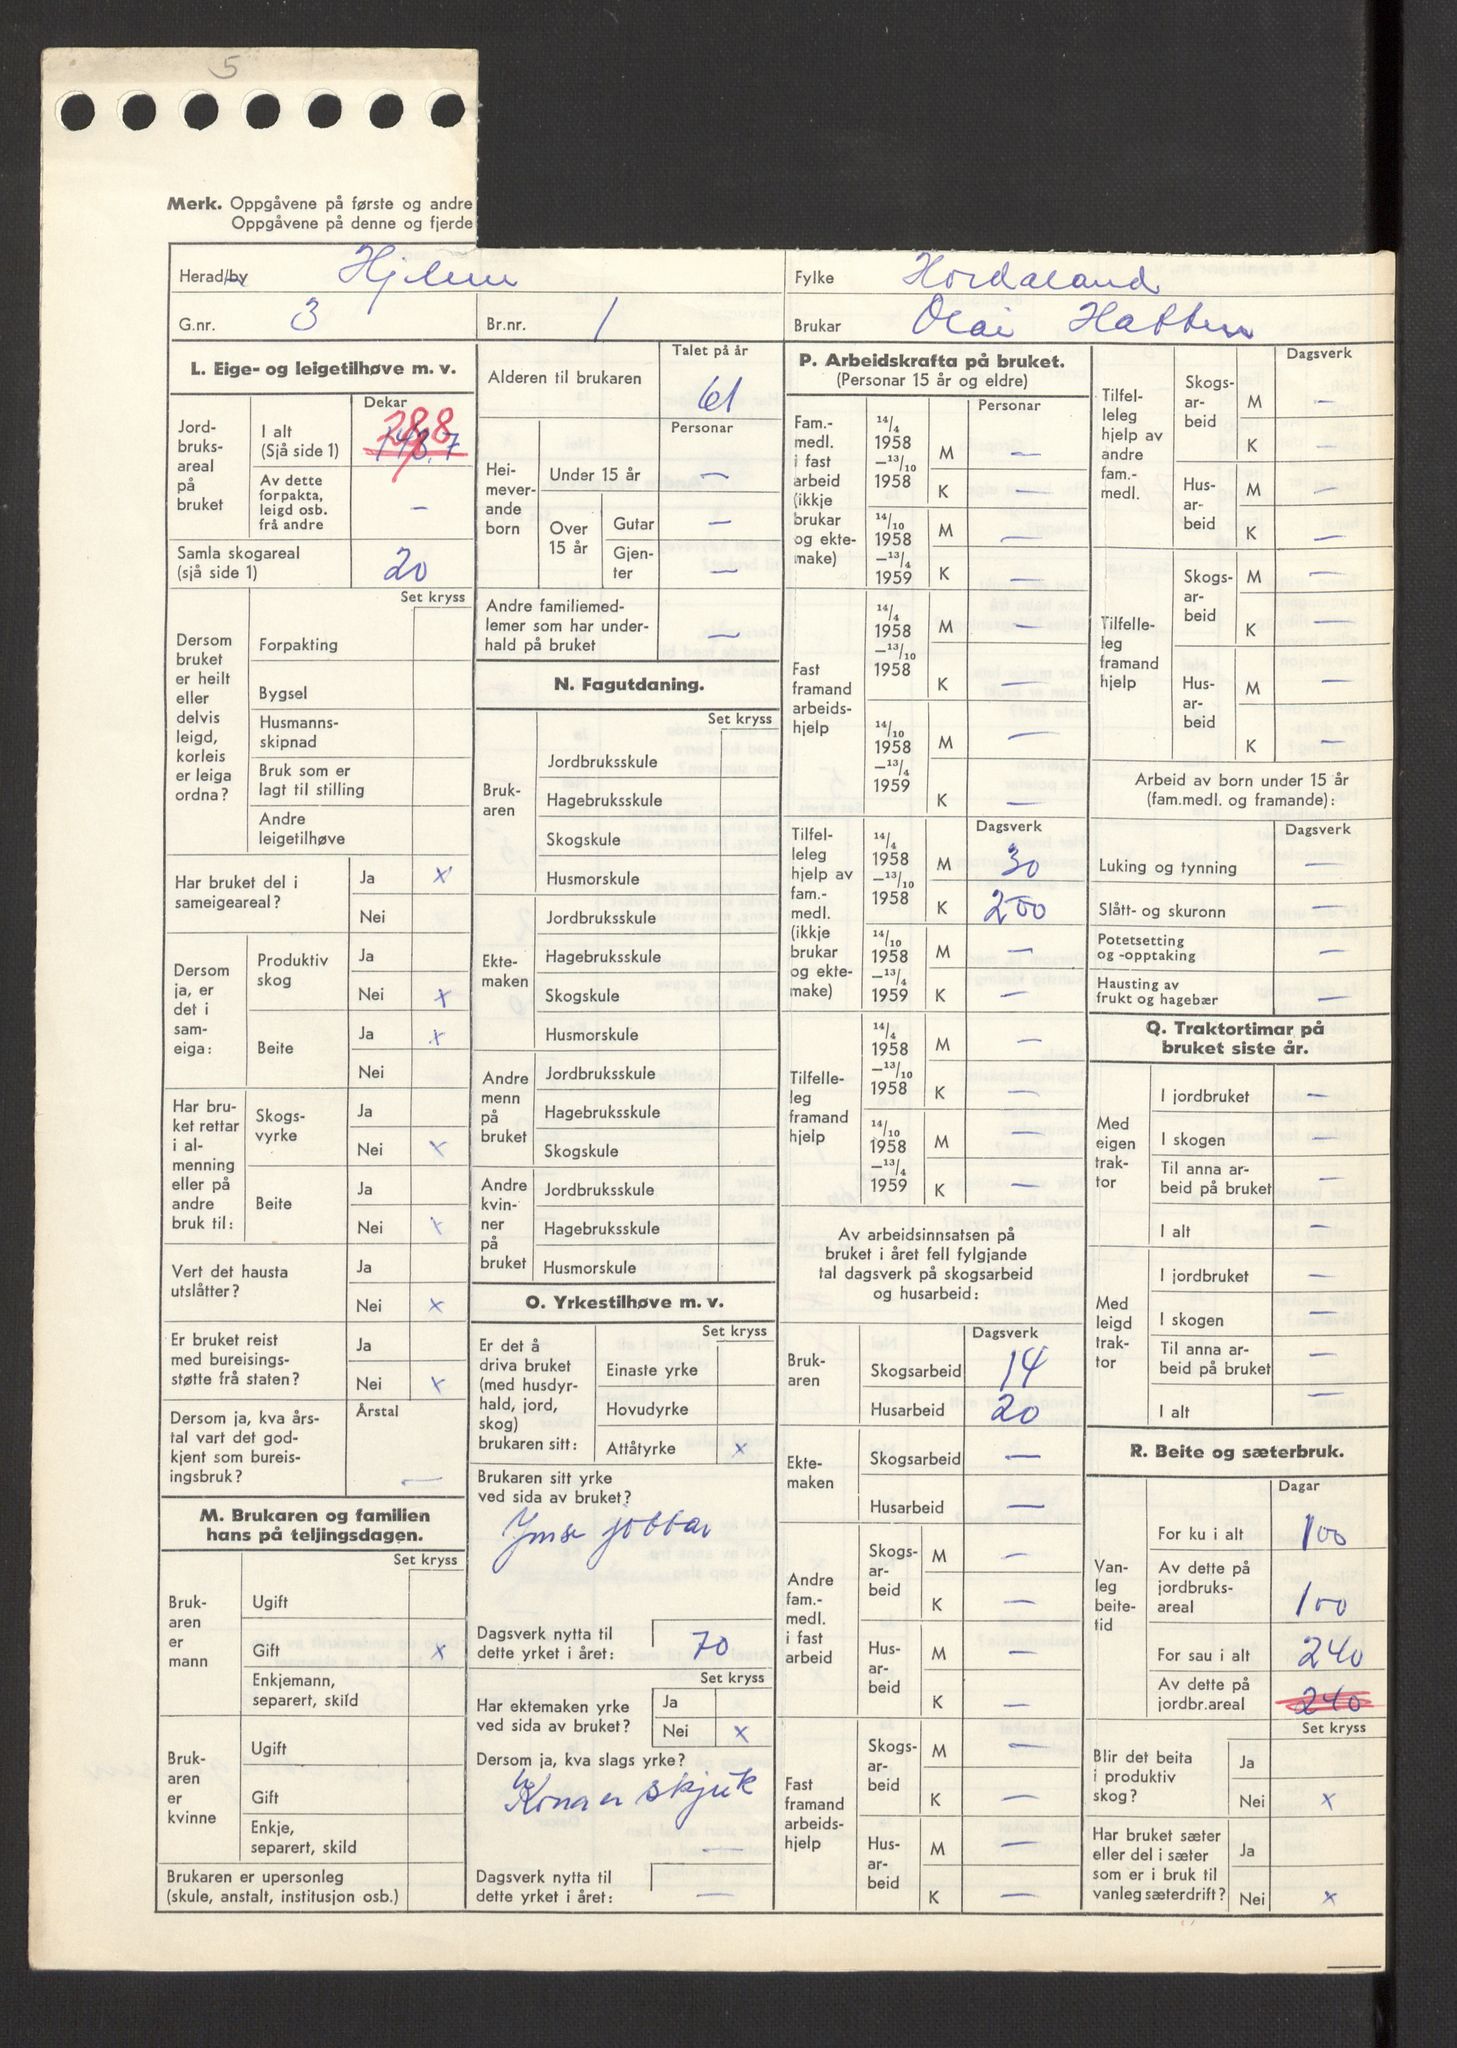 5
Merk. Oppgåvene på første og andre
Oppgåvene på denne og fjerde
Herad/by Hjelme
Fylke Hordaland
G.nr. 3 Br.nr. 1
Brukar Olai Hatten
L. Eige- og leigetilhøve m. v.
Dekar
Jord-
bruks-
areal
på
bruket
I alt
(Sjå side 1) 148,7 28,8
Av dette
forpakta,
leigd osb.
frå andre —
Samla skogareal
(sjå side 1) 20
Set kryss
Dersom
bruket
er heilt
eller
delvis
leigd,
korleis
er leiga
ordna?
Forpakting
Bygsel
Husmanns-
skipnad
Bruk som er
lagt til stilling
Andre
leigetilhøve
Har bruket del i
sameigeareal?
Ja x
Nei
Dersom
ja, er
det i
sam-
eiga:
Produktiv
skog
Ja
Nei x
Beite
Ja x
Nei
Har bru-
ket rettar
i al-
menning
eller på
andre
bruk til:
Skogs-
vyrke
Ja
Nei x
Beite
Ja
Nei x
Vert det hausta
utslåtter?
Ja
Nei x
Er bruket reist
med bureisings-
støtte frå staten?
Ja
Nei x
Dersom ja, kva års-
tal vart det god-
kjent som bureis-
ingsbruk?
Årstal
—
M. Brukaren og familien
hans på teljingsdagen.
Set kryss
Bruk-
aren
er
mann
Ugift
Gift x
Enkjemann,
separert, skild
Bruk-
aren
er
kvinne
Ugift
Gift
Enkje,
separert, skild
Brukaren er upersonleg
(skule, anstalt, institusjon osb.)
Talet på år
Alderen til brukaren 61
Personar
Hei-
mever-
ande
born
Under 15 år —
Over
15 år
Gutar —
Gjen-
ter —
Andre familiemed-
lemer som har under-
hald på bruket —
N. Fagutdaning.
Set kryss
Bruk-
aren
Jordbruksskule
Hagebruksskule
Skogskule
Husmorskule
Ekte-
maken
Jordbruksskule
Hagebruksskule
Skogskule
Husmorskule
Andre
menn
på
bruket
Jordbruksskule
Hagebruksskule
Skogskule
Andre
kvin-
ner
på
bruket
Jordbruksskule
Hagebruksskule
Husmorskule
O. Yrkestilhøve m. v.
Set kryss
Er det å
driva bruket
(med husdyr-
hald, jord,
skog)
brukaren sitt:
Einaste yrke
Hovudyrke
Attåtyrke x
Brukaren sitt yrke
ved sida av bruket?
Ymse jobbar
Dagsverk nytta til
dette yrket i året: 70
Set kryss
Har ektemaken yrke
ved sida av bruket?
Ja
Nei x
Dersom ja, kva slags yrke?
Kona er skjuk
Dagsverk nytta til
dette yrket i året: —
P. Arbeidskrafta på bruket.
(Personar 15 år og eldre)
Personar
Fam.-
medl.
i fast
arbeid
(ikkje
brukar
og ekte-
make)
14/4
1958
—13/10
1958
M —
K —
14/10
1958
—13/4
1959
M —
K —
Fast
framand
arbeids-
hjelp
14/4
1958
—13/10
1958
M —
K —
14/10
1958
—13/4
1959
M —
K —
Dagsverk
Tilfel-
leleg
hjelp av
fam.-
medl.
(ikkje
brukar
og ekte-
make)
14/4
1958
—13/10
1958
M 30
K 200
14/10
1958
—13/4
1959
M —
K —
Tilfelle-
leg
framand
hjelp
14/4
1958
—13/10
1958
M —
K —
14/10
1958
—13/4
1959
M —
K —
Av arbeidsinnsatsen på
bruket i året fell fylgjande
tal dagsverk på skogsarbeid
og husarbeid:
Dagsverk
Bruk-
aren
Skogsarbeid 14
Husarbeid 20
Ekte-
maken
Skogsarbeid —
Husarbeid —
Andre
fam.-
medl.
i fast
arbeid
Skogs-
ar-
beid
M —
K —
Hus-
ar-
beid
M —
K —
Fast
framand
arbeids-
hjelp
Skogs-
ar-
beid
M —
K —
Hus-
ar-
beid
M —
K —
Dagsverk
Tilfel-
leleg
hjelp av
andre
fam.-
medl.
Skogs-
ar-
beid
M —
K —
Hus-
ar-
beid
M —
K —
Tilfelle-
leg
framand
hjelp
Skogs-
ar-
beid
M —
K —
Hus-
ar-
beid
M —
K —
Arbeid av born under 15 år
(fam.medl. og framande):
Dagsverk
Luking og tynning —
Slått- og skuronn —
Potetsetting
og -opptaking —
Hausting av
frukt og hagebær —
Q. Traktortimar på
bruket siste år.
Med
eigen
trak-
tor
I jordbruket —
I skogen —
Til anna ar-
beid på bruket —
I alt —
Med
leigd
trak-
tor
I jordbruket —
I skogen —
Til anna ar-
beid på bruket —
I alt —
R. Beite og sæterbruk.
Dagar
Van-
leg
beite-
tid
For ku i alt 100
Av dette på
jordbruks-
areal 100
For sau i alt 240
Av dette på
jordbr.areal 240
Set kryss
Blir det beita
i produktiv
skog?
Ja
Nei x
Har bruket sæter
eller del i sæter
som er i bruk til
vanleg sæterdrift?
Ja
Nei x